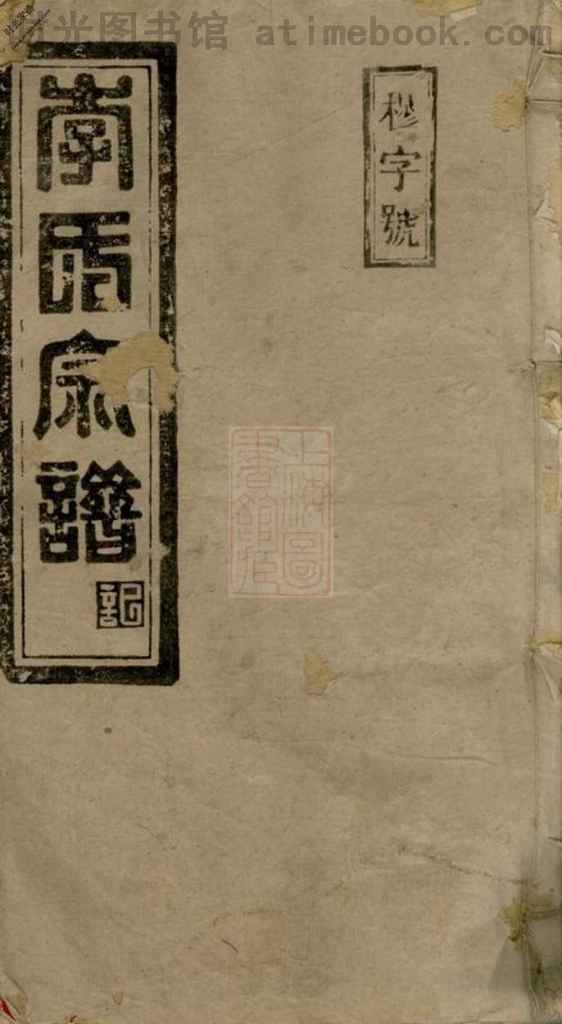 时光图书馆 atimebook.com
穆字號
李氏宗譜
記
上海圖
書館藏